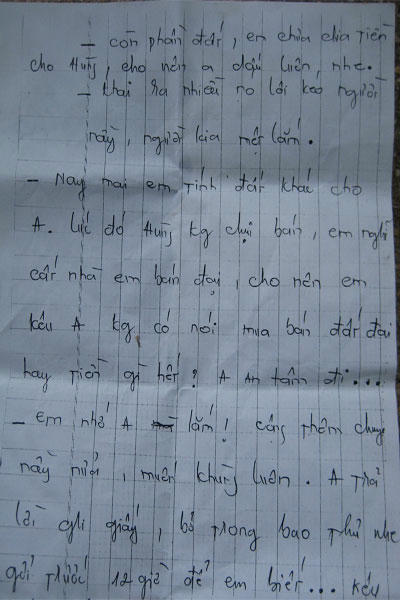 - còn phần đất, em chia chia tiền
cho Hùng, cho nên a dấu luôn, nhe.
- khai ra nhiều nó lôi kéo người
này, người kia mệt lắm.
- Nay mai em tính đất khác cho
A. lúc đó Hùng kg chịu bán, em nghĩ
cất nhà em bán đại, cho nên em
kêu A kg có nói mua bán đất đai
hay tiền gì hết? A An tâm đi...
- em nhớ A lắm! cộng thêm chuyện
này nữa, muốn khùng luôn. A trả
lời ghi giấy, bỏ trong bao thư nhe
gởi trước 12 giờ để em biết... kêu